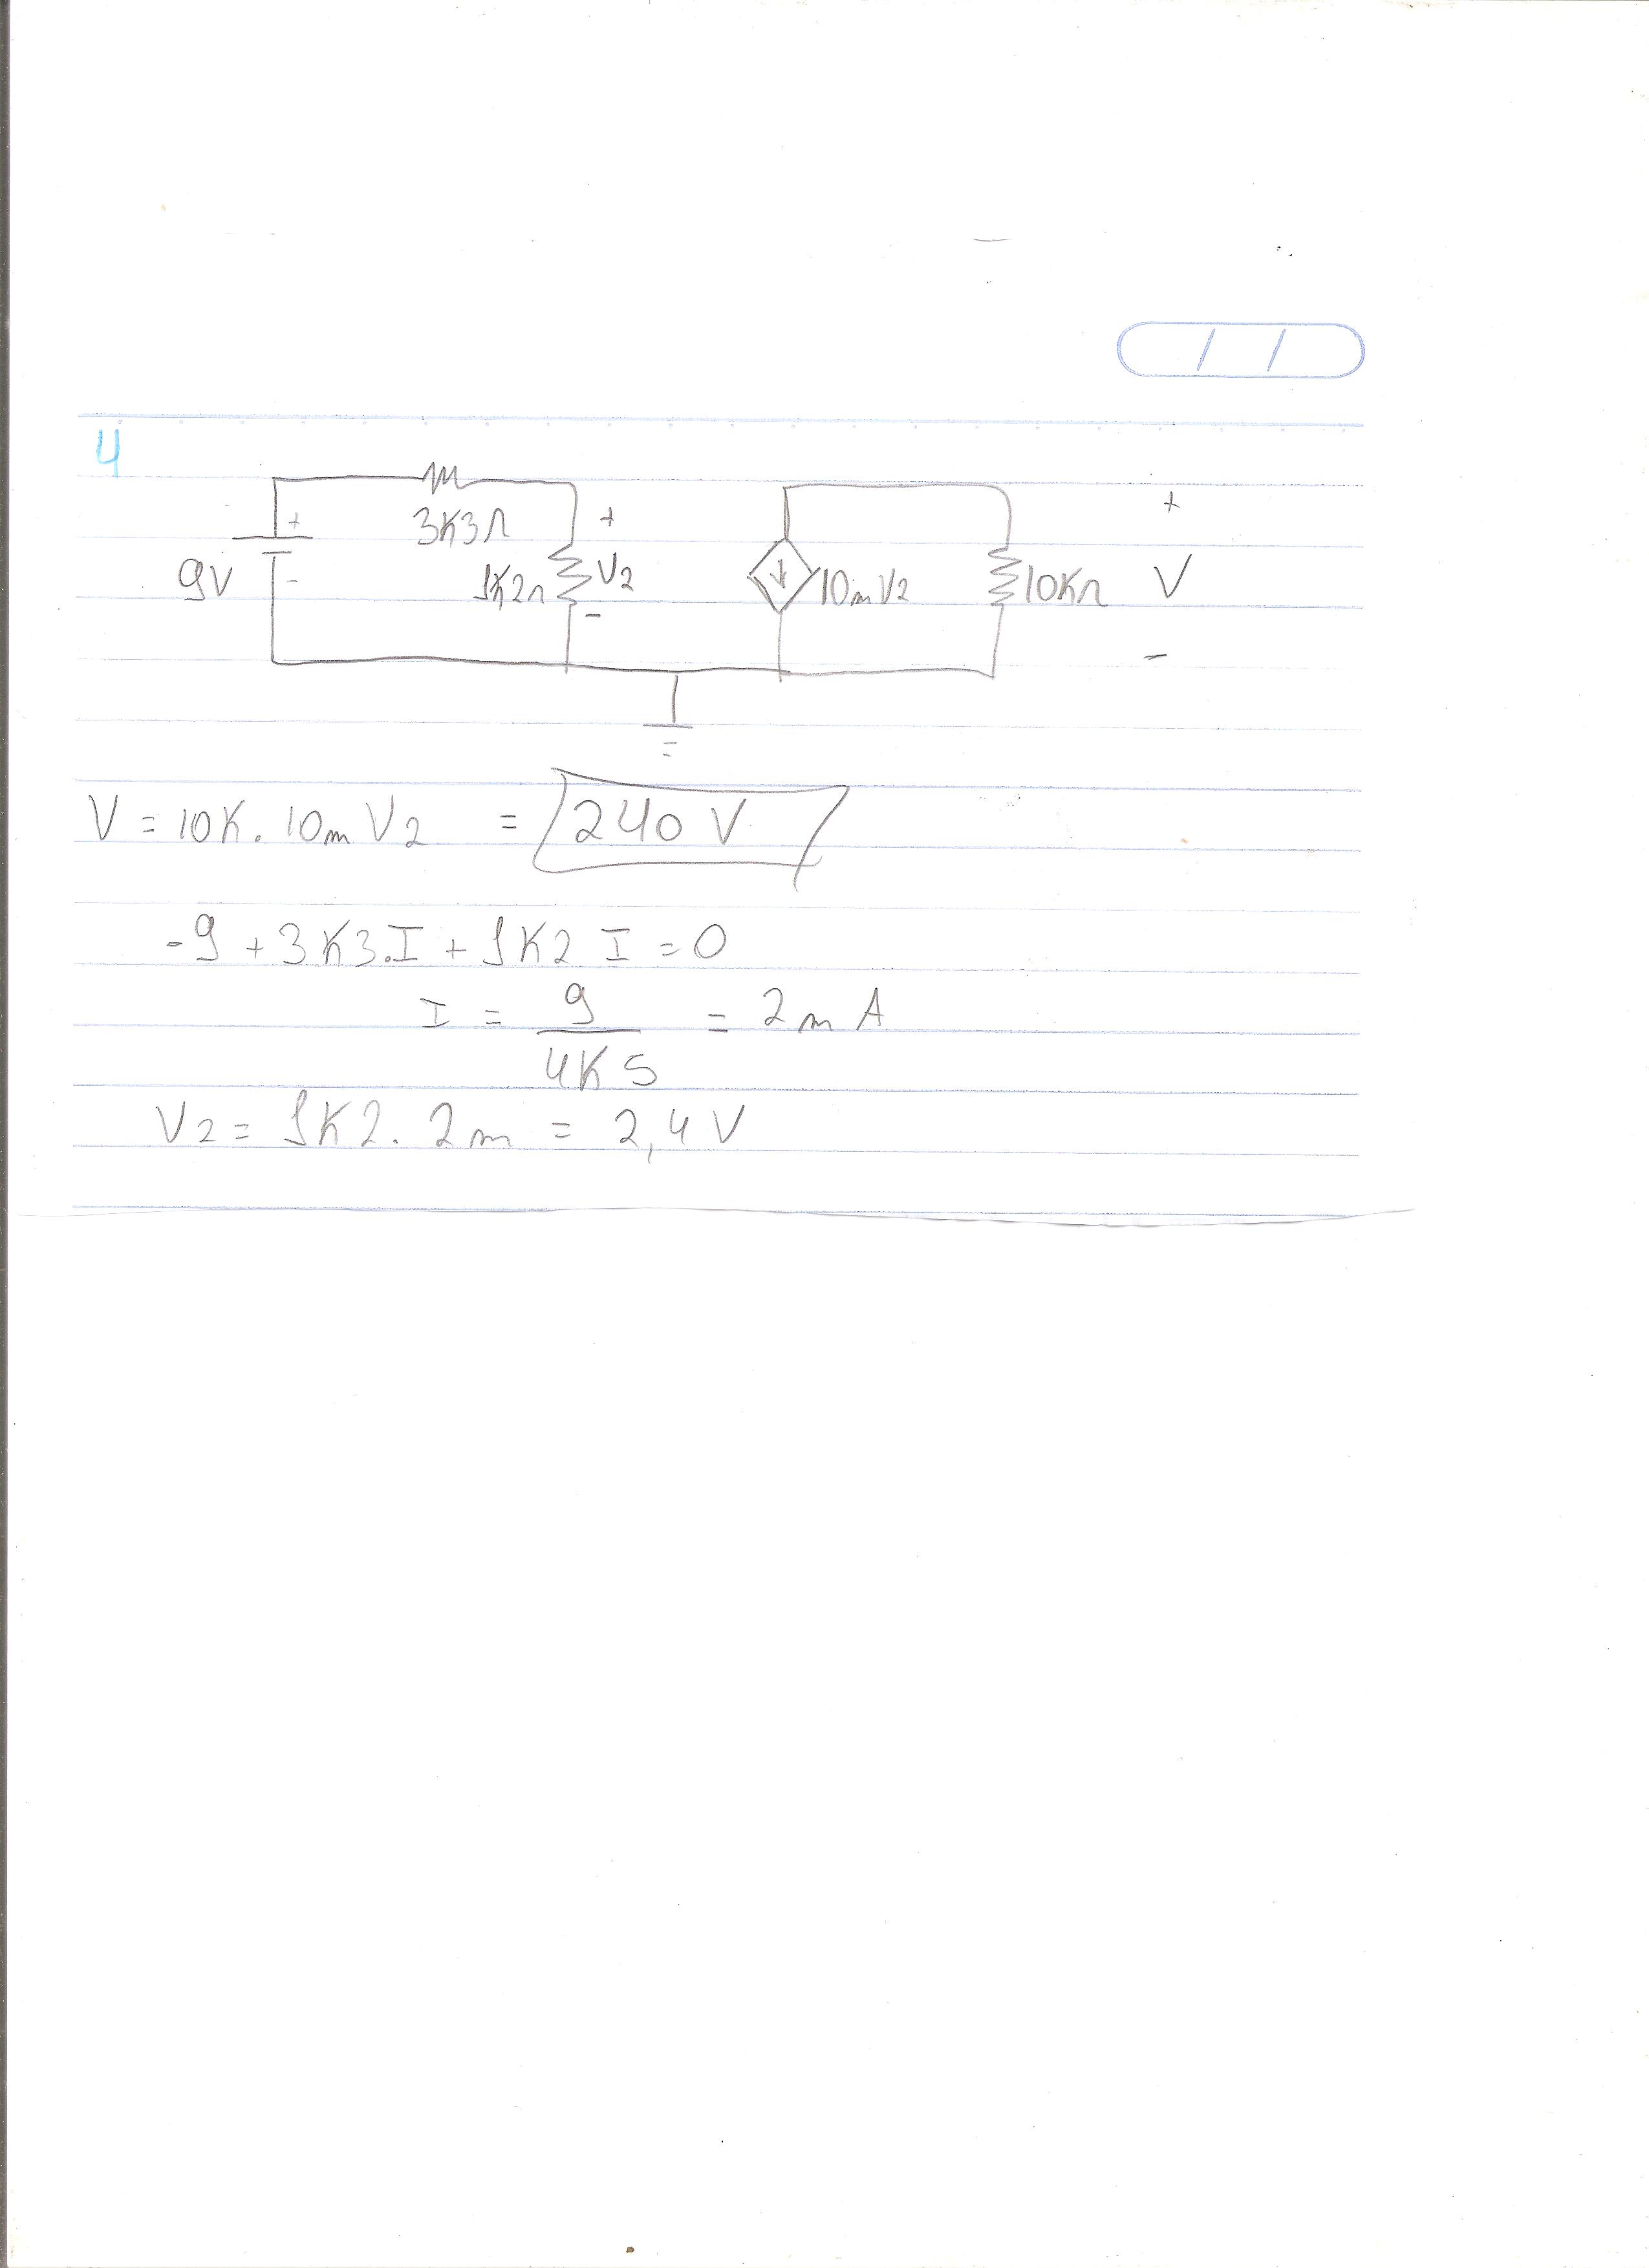 4
3K3Ω
+
+
+
9V
-
1K2Ω
V2
-
10mV2
10KΩ
V
-
V = 10K. 10m V2 = 240 V
-9 + 3K3.I + 1K2 I = 0
I = 9 / 4K5 = 2m A
V2 = 1K2. 2m = 2,4 V